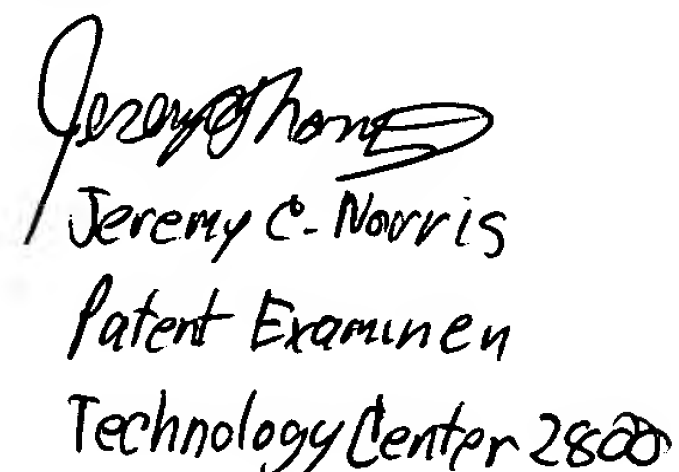 Jeremy C. Norris
Jeremy C. Norris
Patent Examiner
Technology Center 2800